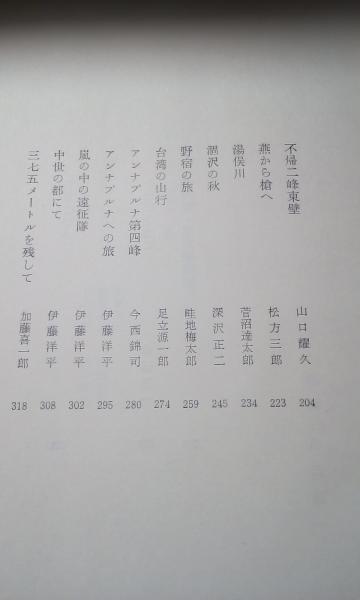 不帰二峰東壁 山口耀久 204
燕から槍へ 松方三郎 223
湯俣川 菅沼達太郎 234
涸沢の秋 深沢正二 245
野宿の旅 畦地梅太郎 259
台湾の山行 足立源一郎 274
アンナプルナ第四峰 今西錦司 280
アンナプルナへの旅 伊藤洋平 295
嵐の中の遠征隊 伊藤洋平 302
中世の都にて 伊藤洋平 308
三七五メートルを残して 加藤喜一郎 318